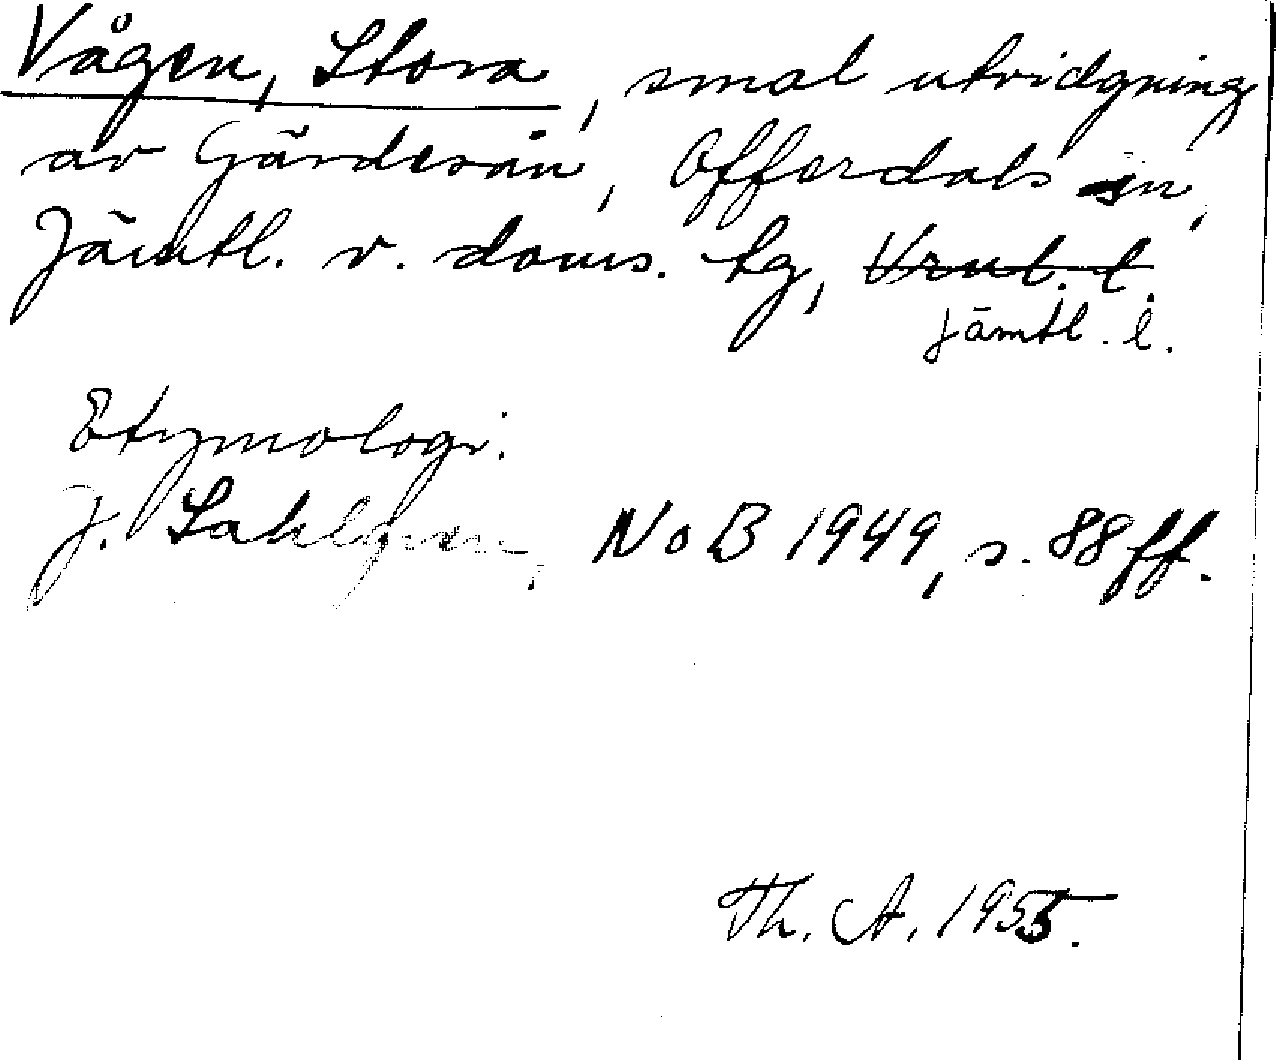 Vågen, Stora, smal utvidgning
av Gärdesån, Offerdals sn,
Jämtl. v. doms. tg, Vrml. l.
Jämtl. l.
Etymologi:
J. Sahlgren, NoB 1949, s. 88 ff.
Th. A. 1955.